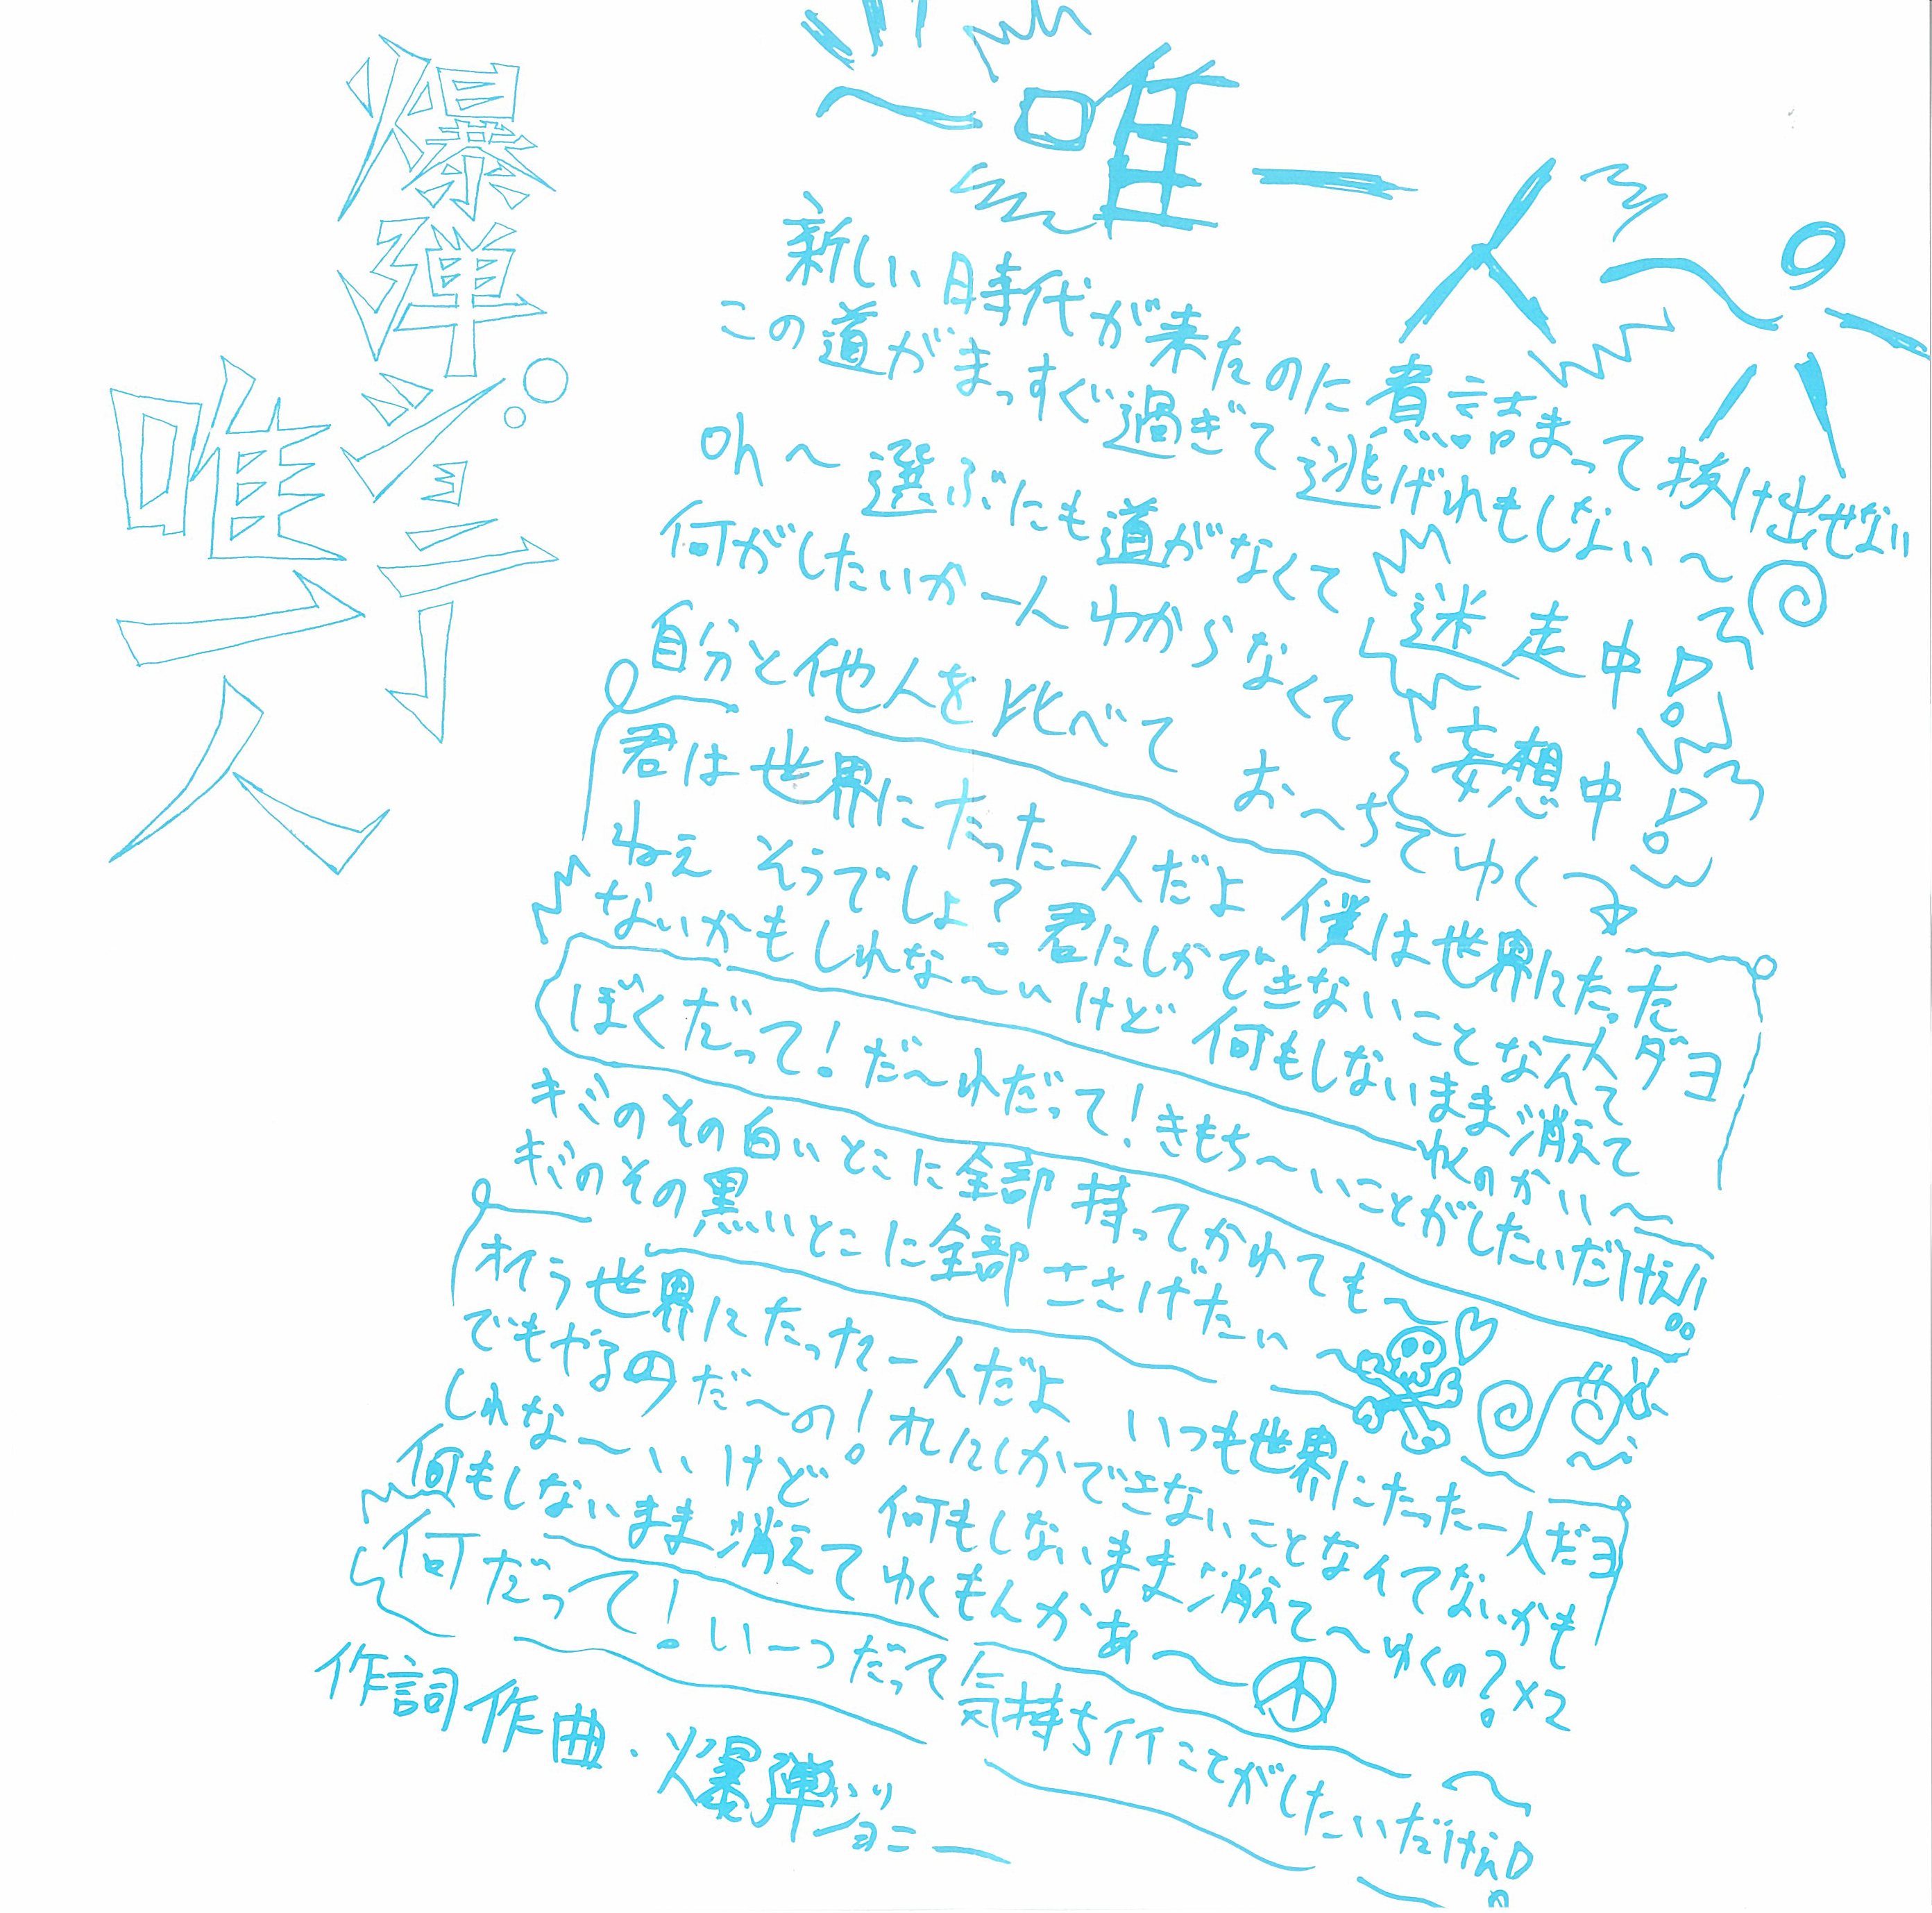 爆弾ジョニー
唯一人
唯一人
新しい時代が来たのに煮こごまって抜け出せない
この道がまっすぐ過ぎて逃げれもしない〜
oh〜 選ぶにも道がなくて 迷走中
何がしたいか一人わからなくて 妄想中
自分と他人を比べて おっちてゆく
君は世界にたった一人だよ 僕は世界にたった一人ダヨ
ねえ そうでしょ? 君にしかできないことなんて
ないかもしれな〜いけど 何もしないまま消えて
ゆくのかい〜
ぼくだって!だ〜れだって!きもち〜いことがしたいだけだ!!
キミのその白いとこに全部持ってかれても
キミのその黒いとこに全部ささげたい
オイラ世界にたった一人だよ いつも世界にたった一人だヨ
でもやるのだ〜の! オレにしかできないことなんてないかも
しれな〜いけど。 何もしないまま消えて〜ゆくの?×2
何もしないまま消えてゆくもんかあ〜
何だって!い〜つだって気持ち行ことがしたいだけだ
作詞作曲・爆弾ジョニー